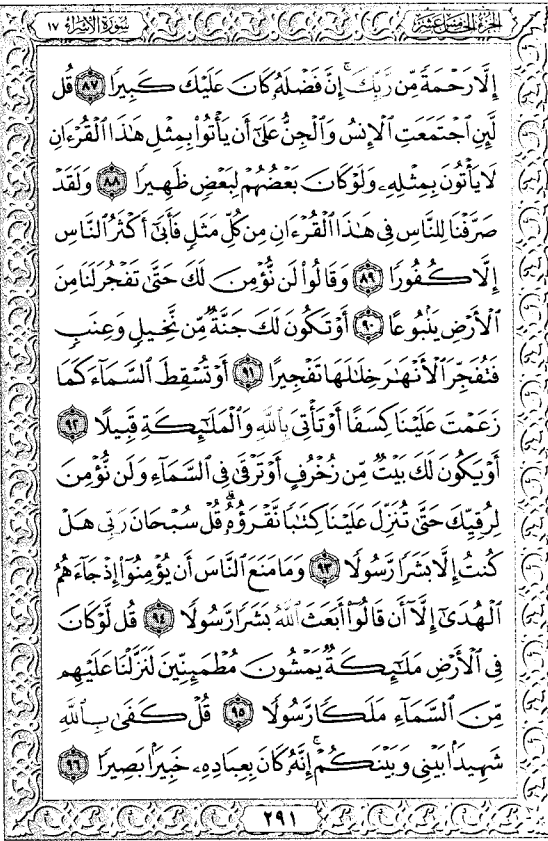 الجزء الخامس عشر سورة الإسراء ١٧
إِلَّا رَحْمَةً مِّن رَّبِّكَ ۚ إِنَّ فَضْلَهُۥ كَانَ عَلَيْكَ كَبِيرًا ٨٧ قُل
لَّئِنِ ٱجْتَمَعَتِ ٱلْإِنسُ وَٱلْجِنُّ عَلَىٰٓ أَن يَأْتُوا۟ بِمِثْلِ هَٰذَا ٱلْقُرْءَانِ
لَا يَأْتُونَ بِمِثْلِهِۦ وَلَوْ كَانَ بَعْضُهُمْ لِبَعْضٍ ظَهِيرًا ٨٨ وَلَقَدْ
صَرَّفْنَا لِلنَّاسِ فِى هَٰذَا ٱلْقُرْءَانِ مِن كُلِّ مَثَلٍ فَأَبَىٰٓ أَكْثَرُ ٱلنَّاسِ
إِلَّا كُفُورًا ٨٩ وَقَالُوا۟ لَن نُّؤْمِنَ لَكَ حَتَّىٰ تَفْجُرَ لَنَا مِنَ
ٱلْأَرْضِ يَنۢبُوعًا ٩٠ أَوْ تَكُونَ لَكَ جَنَّةٌ مِّن نَّخِيلٍ وَعِنَبٍ
فَتُفَجِّرَ ٱلْأَنْهَٰرَ خِلَٰلَهَا تَفْجِيرًا ٩١ أَوْ تُسْقِطَ ٱلسَّمَآءَ كَمَا
زَعَمْتَ عَلَيْنَا كِسَفًا أَوْ تَأْتِىَ بِٱللَّهِ وَٱلْمَلَٰٓئِكَةِ قَبِيلًا ٩٢
أَوْ يَكُونَ لَكَ بَيْتٌ مِّن زُخْرُفٍ أَوْ تَرْقَىٰ فِى ٱلسَّمَآءِ وَلَن نُّؤْمِنَ
لِرُقِيِّكَ حَتَّىٰ تُنَزِّلَ عَلَيْنَا كِتَٰبًا نَّقْرَؤُهُۥ ۗ قُلْ سُبْحَانَ رَبِّى هَلْ
كُنتُ إِلَّا بَشَرًا رَّسُولًا ٩٣ وَمَا مَنَعَ ٱلنَّاسَ أَن يُؤْمِنُوٓا۟ إِذْ جَآءَهُمُ
ٱلْهُدَىٰٓ إِلَّآ أَن قَالُوٓا۟ أَبَعَثَ ٱللَّهُ بَشَرًا رَّسُولًا ٩٤ قُل لَّوْ كَانَ
فِى ٱلْأَرْضِ مَلَٰٓئِكَةٌ يَمْشُونَ مُطْمَئِنِّينَ لَنَزَّلْنَا عَلَيْهِم
مِّنَ ٱلسَّمَآءِ مَلَكًا رَّسُولًا ٩٥ قُلْ كَفَىٰ بِٱللَّهِ
شَهِيدًۢا بَيْنِى وَبَيْنَكُمْ ۚ إِنَّهُۥ كَانَ بِعِبَادِهِۦ خَبِيرًۢا بَصِيرًا ٩٦
٢٩١